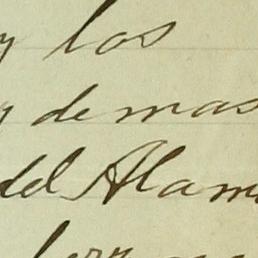 y los
y demas
del Alam